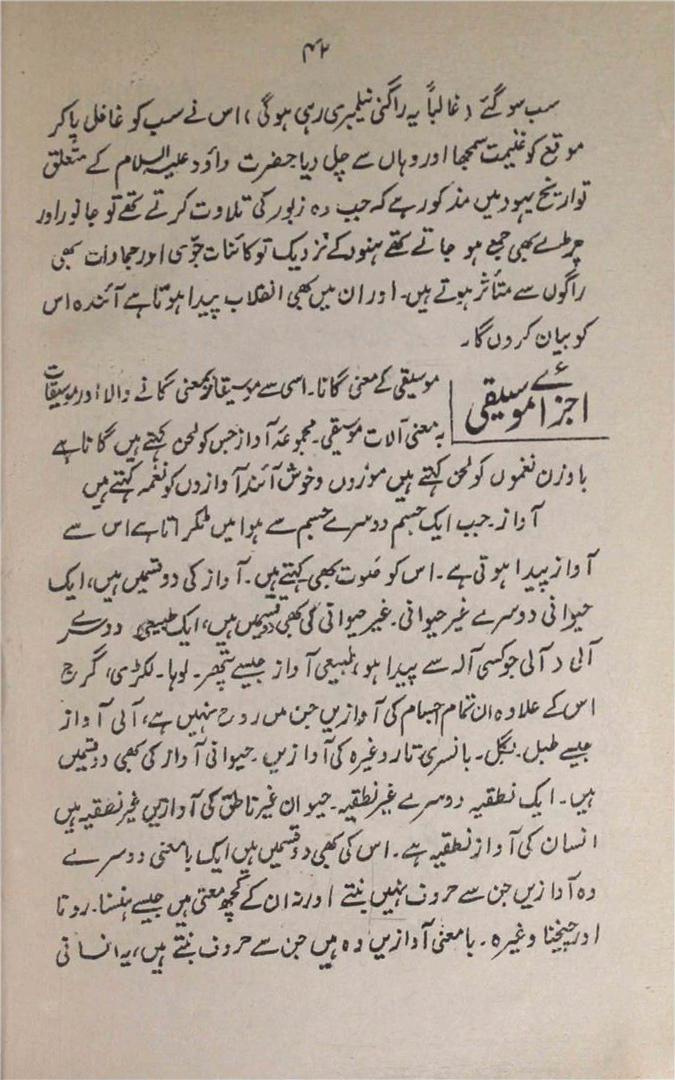 ۴۲
سب سو گئے (غالباً یہ راگنی نیلمبری رہی ہوگی) اس نے سب کو غافل پا کر
موقع کو غنیمت سمجھا اور وہاں سے چل دیا حضرت داؤد علیہ السلام کے متعلق
تواریخ یہود میں مذکور ہے کہ جب وہ زبور کی تلاوت کرتے تھے تو جانور اور
چرطے بھی جمع ہو جاتے تھے ہنود کے نزدیک تو کائنات جوّی اور جمادات بھی
راگوں سے متأثر ہوتے ہیں۔ اور ان میں بھی انقلاب پیدا ہوتا ہے آئندہ اس
کو بیان کروں گا۔
اجزائے موسیقی
موسیقی کے معنی گانا۔ اسی سے موسیقار بمعنی گانے والا اور موسیقات
بہ معنی آلات موسیقی۔ مجموعۂ آواز جس کو لحن کہتے ہیں گانا ہے
باوزن نغموں کو لحن کہتے ہیں موزوں و خوش آئند آوازوں کو نغمہ کہتے ہیں
آواز۔ جب ایک جسم دوسرے جسم سے ہوا میں ٹکراتا ہے اس سے
آواز پیدا ہوتی ہے۔ اس کو صوت بھی کہتے ہیں۔ آواز کی دو قسمیں ہیں، ایک
حیوانی دوسرے غیر حیوانی۔ غیر حیوانی کی بھی دو قسمیں ہیں، ایک طبیعی دوسرے
آلی د آلی جو کسی آلہ سے پیدا ہو، طبیعی آواز جیسے پتھر۔ لوہا۔ لکڑی، گرج
اس کے علاوہ ان تمام اجسام کی آوازیں جن میں روح نہیں ہے، آلی آواز
جیسے طبل۔ بگل۔ بانسری تار وغیرہ کی آوازیں۔ حیوانی آواز کی بھی دو قسمیں
ہیں۔ ایک نطقیہ دوسرے غیر نطقیہ۔ حیوان غیر ناطق کی آوازیں غیر نطقیہ ہیں
انسان کی آواز نطقیہ ہے۔ اس کی بھی دو قسمیں ہیں ایک بامعنی دوسرے
وہ آوازیں جن سے حروف نہیں بنتے اور نہ ان کے کچھ معنی ہیں جیسے ہنسنا۔ رونا
اور چیخنا وغیرہ۔ بامعنی آوازیں وہ ہیں جن سے حروف بنتے ہیں، یہ انسانی